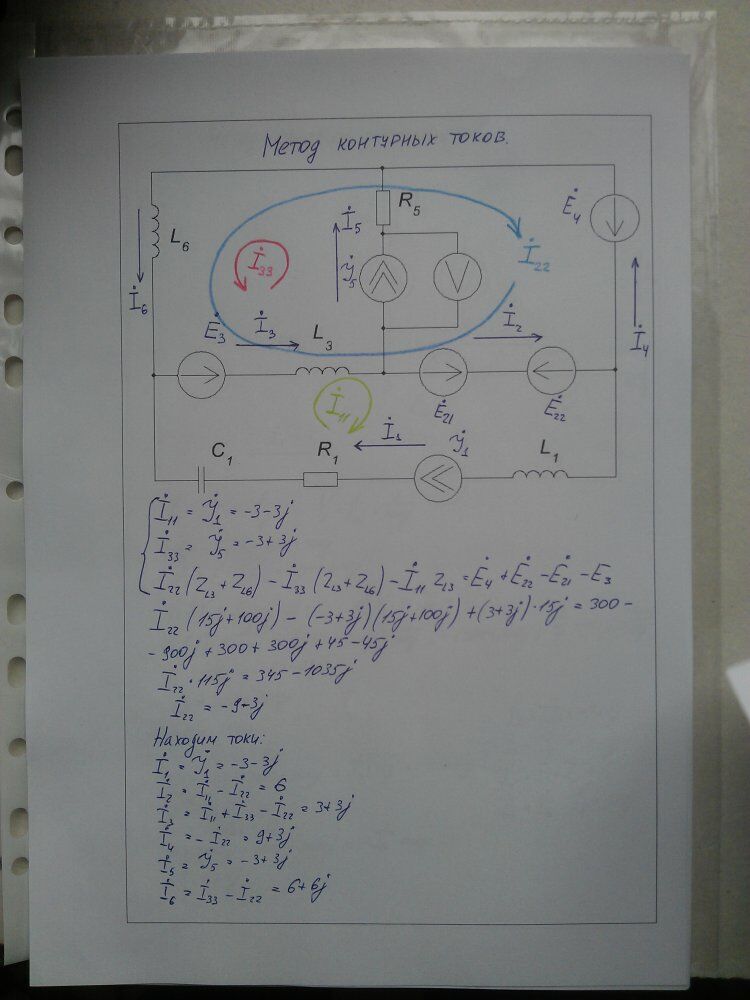 Метод контурных токов.
L6
R5
Ė4
İ5
J̇5
V
İ22
İ33
İ6
Ė3
İ3
L3
İ2
İ4
İ11
Ė21
Ė22
C1
R1
İ1
J̇1
L1
İ11 = J̇1 = -3-3j
İ33 = J̇5 = -3+3j
İ22 (ZL3 + ZL6) - İ33 (ZL3+ZL6) - İ11 ZL3 = Ė4 + Ė22 - Ė21 - Ė3
İ22 (15j+100j) - (-3+3j)(15j+100j) + (3+3j)·15j = 300 -
- 900j + 300 + 300j + 45 - 45j
İ22 · 115j = 345 - 1035j
İ22 = -9+3j
Находим токи:
İ1 = J̇1 = -3-3j
İ2 = İ11 - İ22 = 6
İ3 = İ11 + İ33 - İ22 = 3+3j
İ4 = - İ22 = 9+3j
İ5 = J̇5 = -3+3j
İ6 = İ33 - İ22 = 6+6j